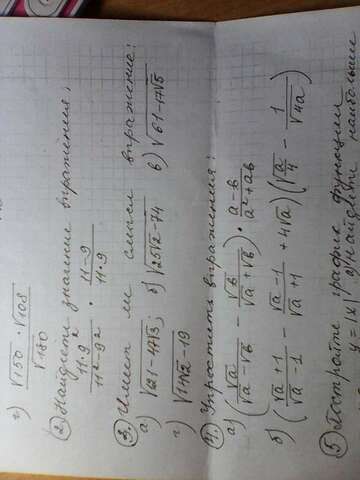 г) √150 · √108 / √150
② Найдите значение выражения:
11·9 / 11²-9² · 11-9 / 11·9
③. Имеет ли смысл выражение:
а) √21-47√3; б) √25√2-74 в) √61-17√5
г) √14√2-19
④. Упростить выражения:
а) (√a / √a-√b - √b / √a+√b) · a-b / a²+ab
б) (√a+1 / √a-1 - √a-1 / √a+1 + 4√a) (√a / 4 - 1 / √4a)
⑤ Постройте график функции
y = |x| Найдите наибольшее